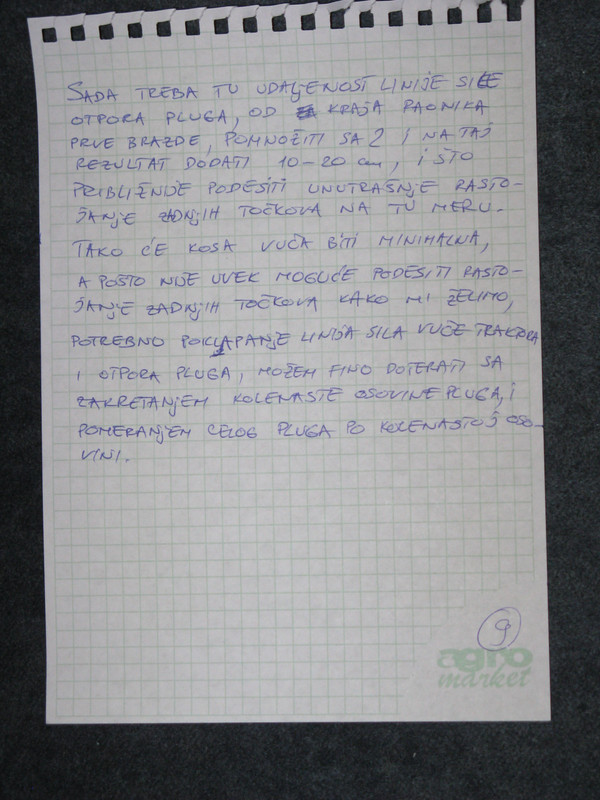 SADA TREBA TU UDALJENOST LINIJE SILE
OTPORA PLUGA, OD KRAJA RAONIKA
PRVE BRAZDE, POMNOŽITI SA 2 I NA TAJ
REZULTAT DODATI 10-20 cm, I ŠTO
PRIBLIŽNIJE PODESITI UNUTRAŠNJE RASTO-
JANJE ZADNJIH TOČKOVA NA TU MERU.
TAKO ĆE KOSA VUČA BITI MINIMALNA,
A POŠTO NIJE UVEK MOGUĆE PODESITI RASTO-
JANJE ZADNJIH TOČKOVA KAKO MI ŽELIMO,
POTREBNO POKLAPANJE LINIJA SILA VUČE TRAKTORA
I OTPORA PLUGA, MOŽEM FINO DOTERATI SA
ZAKRETANJEM KOLENASTE OSOVINE PLUGA, I
POMERANJEM CELOG PLUGA PO KOLENASTOJ OSO-
VINI.
9
agro
market